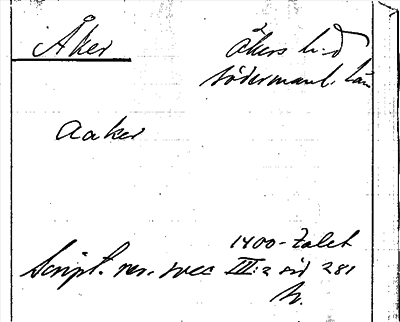 Åker
Åkers h:d
Södermanl. län
Aaker
1400-talet
Script. rer. svec III:2 sid 281
h.